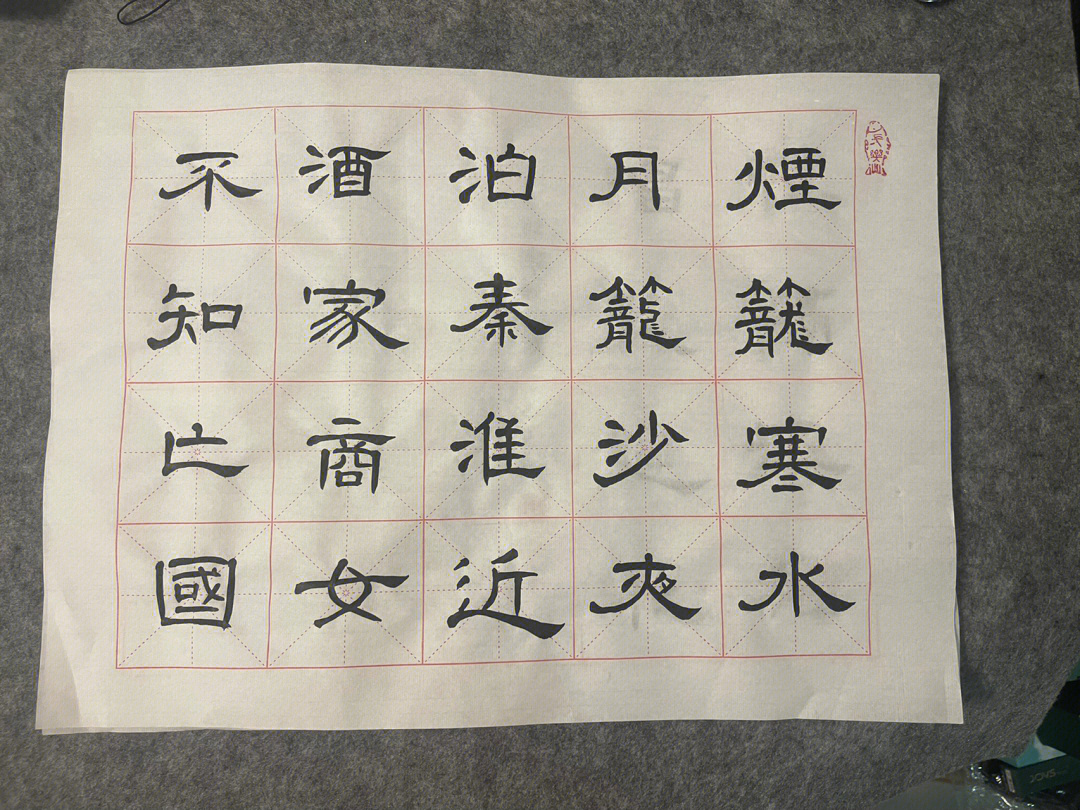 煙籠寒水
月籠沙夜
泊秦淮近
酒家商女
不知亡國